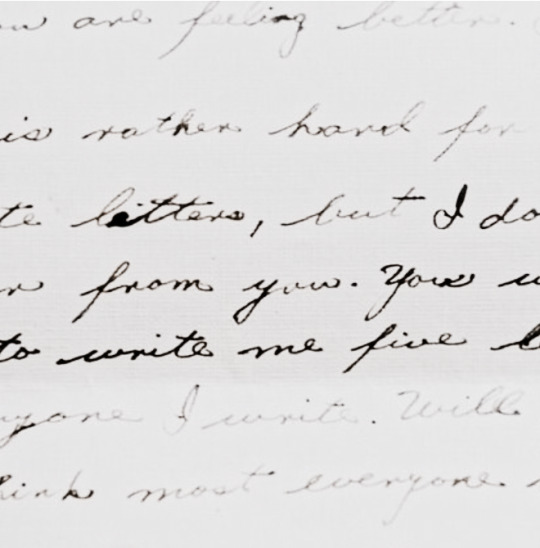 are feeling better.
is rather hard for
te letters, but I do
from you. You w
to write me five l
yone I write. Will
hink most everyone